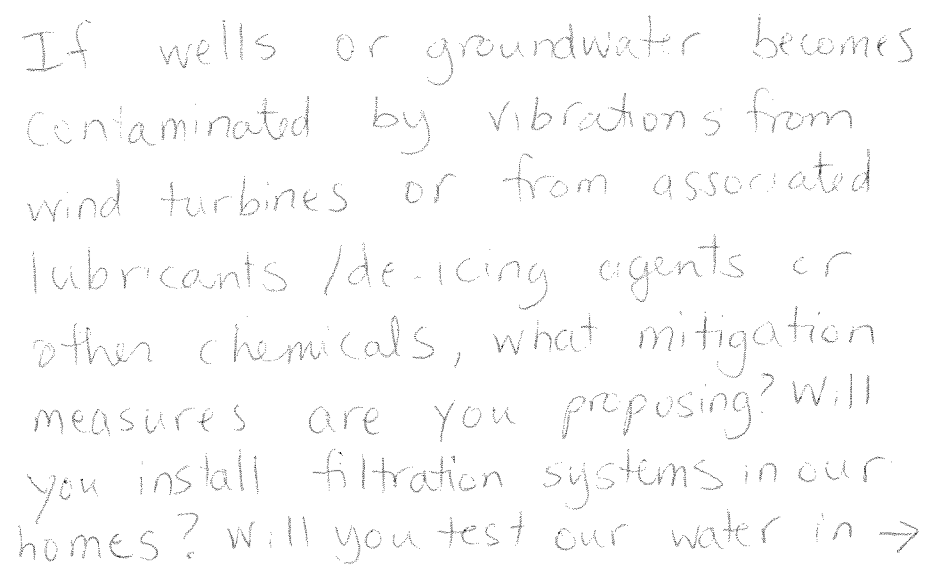 If wells or groundwater becomes
contaminated by vibrations from
wind turbines or from associated
lubricants /de-icing agents or
other chemicals, what mitigation
measures are you proposing? Will
you install filtration systems in our
homes? Will you test our water in →